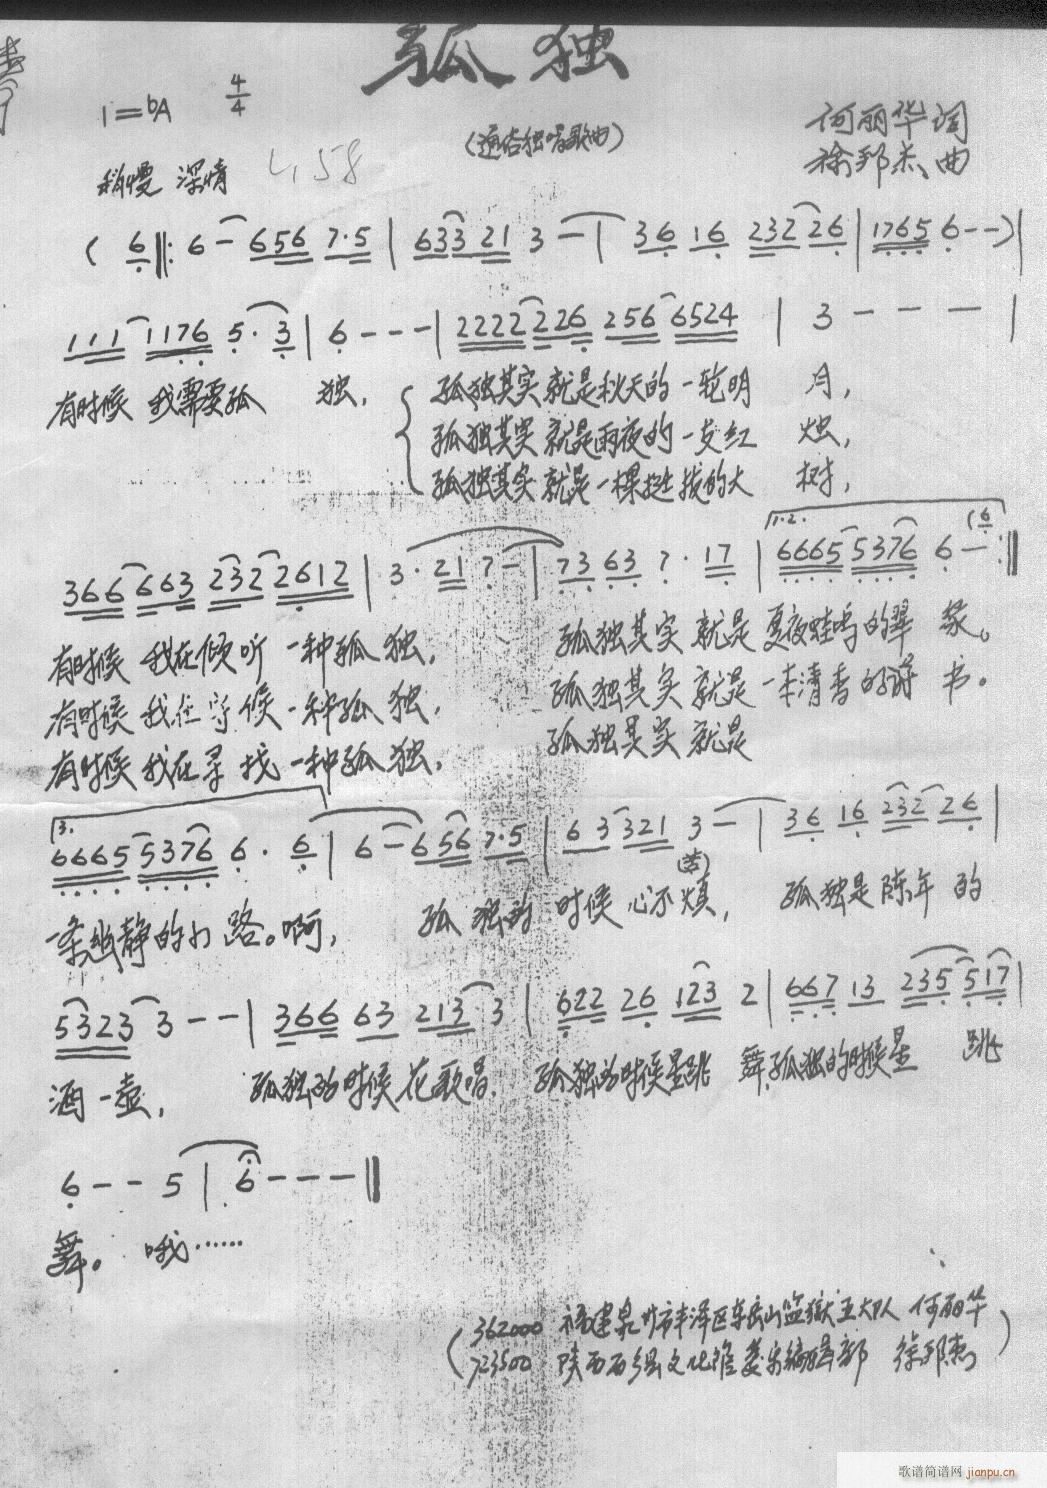 孤独
1=bA 4/4
何丽华词
(通俗独唱歌曲)
徐邦杰曲
稍慢 深情 58
( 6 ‖: 6 — 656 7·5 | 633 21 3 — | 36 16 232 26 | 1765 6 - - ) |
111 1176 5· 3 | 6 - - - | 2222 226 256 6524 | 3 - - - |
有时候 我需要孤 独, { 孤独其实 就是秋天的 一轮明 月,
孤独其实 就是雨夜的 一支红 烛,
孤独其实 就是一棵挺拔的大 树,
1.2. (6
366 663 232 2612 | 3· 21 7 - | 73 63 7· 17 | 6665 5376 6 — :‖
有时候 我在倾听 一种孤 独, 孤独其实 就是 夏夜蛙鸣的翠 绿。
有时候 我在守候 一种孤 独, 孤独其实 就是 一本清香的诗 书。
有时候 我在寻找 一种孤 独, 孤独其实 就是
3.
6665 5376 6· 6 | 6 - 656 7·5 | 63 321 3 - | 36 16 232 26 |
(苦)
一条幽静的小路。啊, 孤独的 时候 心不烦, 孤独是 陈年 的
5323 3 - - | 366 63 213 3 | 622 26 123 2 | 667 13 235 517 |
酒一壶, 孤独的时候 花歌唱, 孤独的时候星跳 舞,孤独的时候星 跳
6 - - 5 | 6 - - - ‖
舞。 哦……
(362000 福建泉州市丰泽区 监狱五大队 何丽华
723500 陕西西乡县文化馆 编辑部 徐邦杰)
歌谱简谱网 jianpu.cn